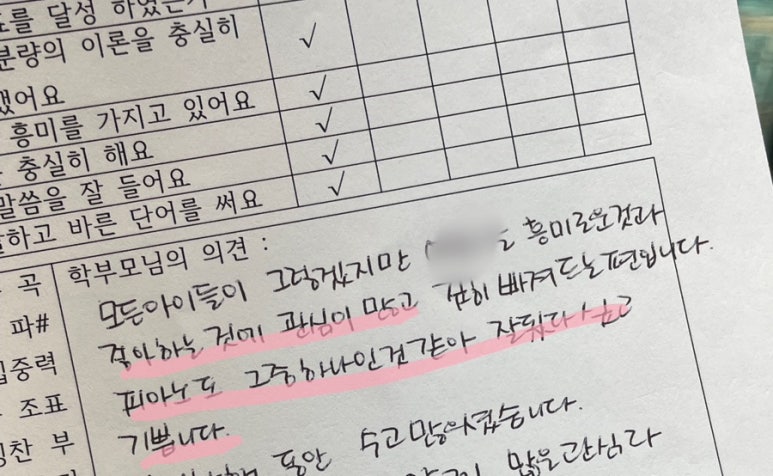 표를 달성 하였는가
분량의 이론을 충실히
했어요
흥미를 가지고 있어요
충실히 해요
말씀을 잘 들어요
하고 바른 단어를 써요
곡
파#
집중력
조표
칭찬 부
학부모님의 의견 :
모든아이들이 그렇겠지만 흥미로운것과
좋아하는 것에 관심이 많고 깊히 빠져드는편입니다.
피아노도 그중하나인것같아 잘됐다 싶고
기쁩니다.
동안 수고많으셨습니다.
많은관심과